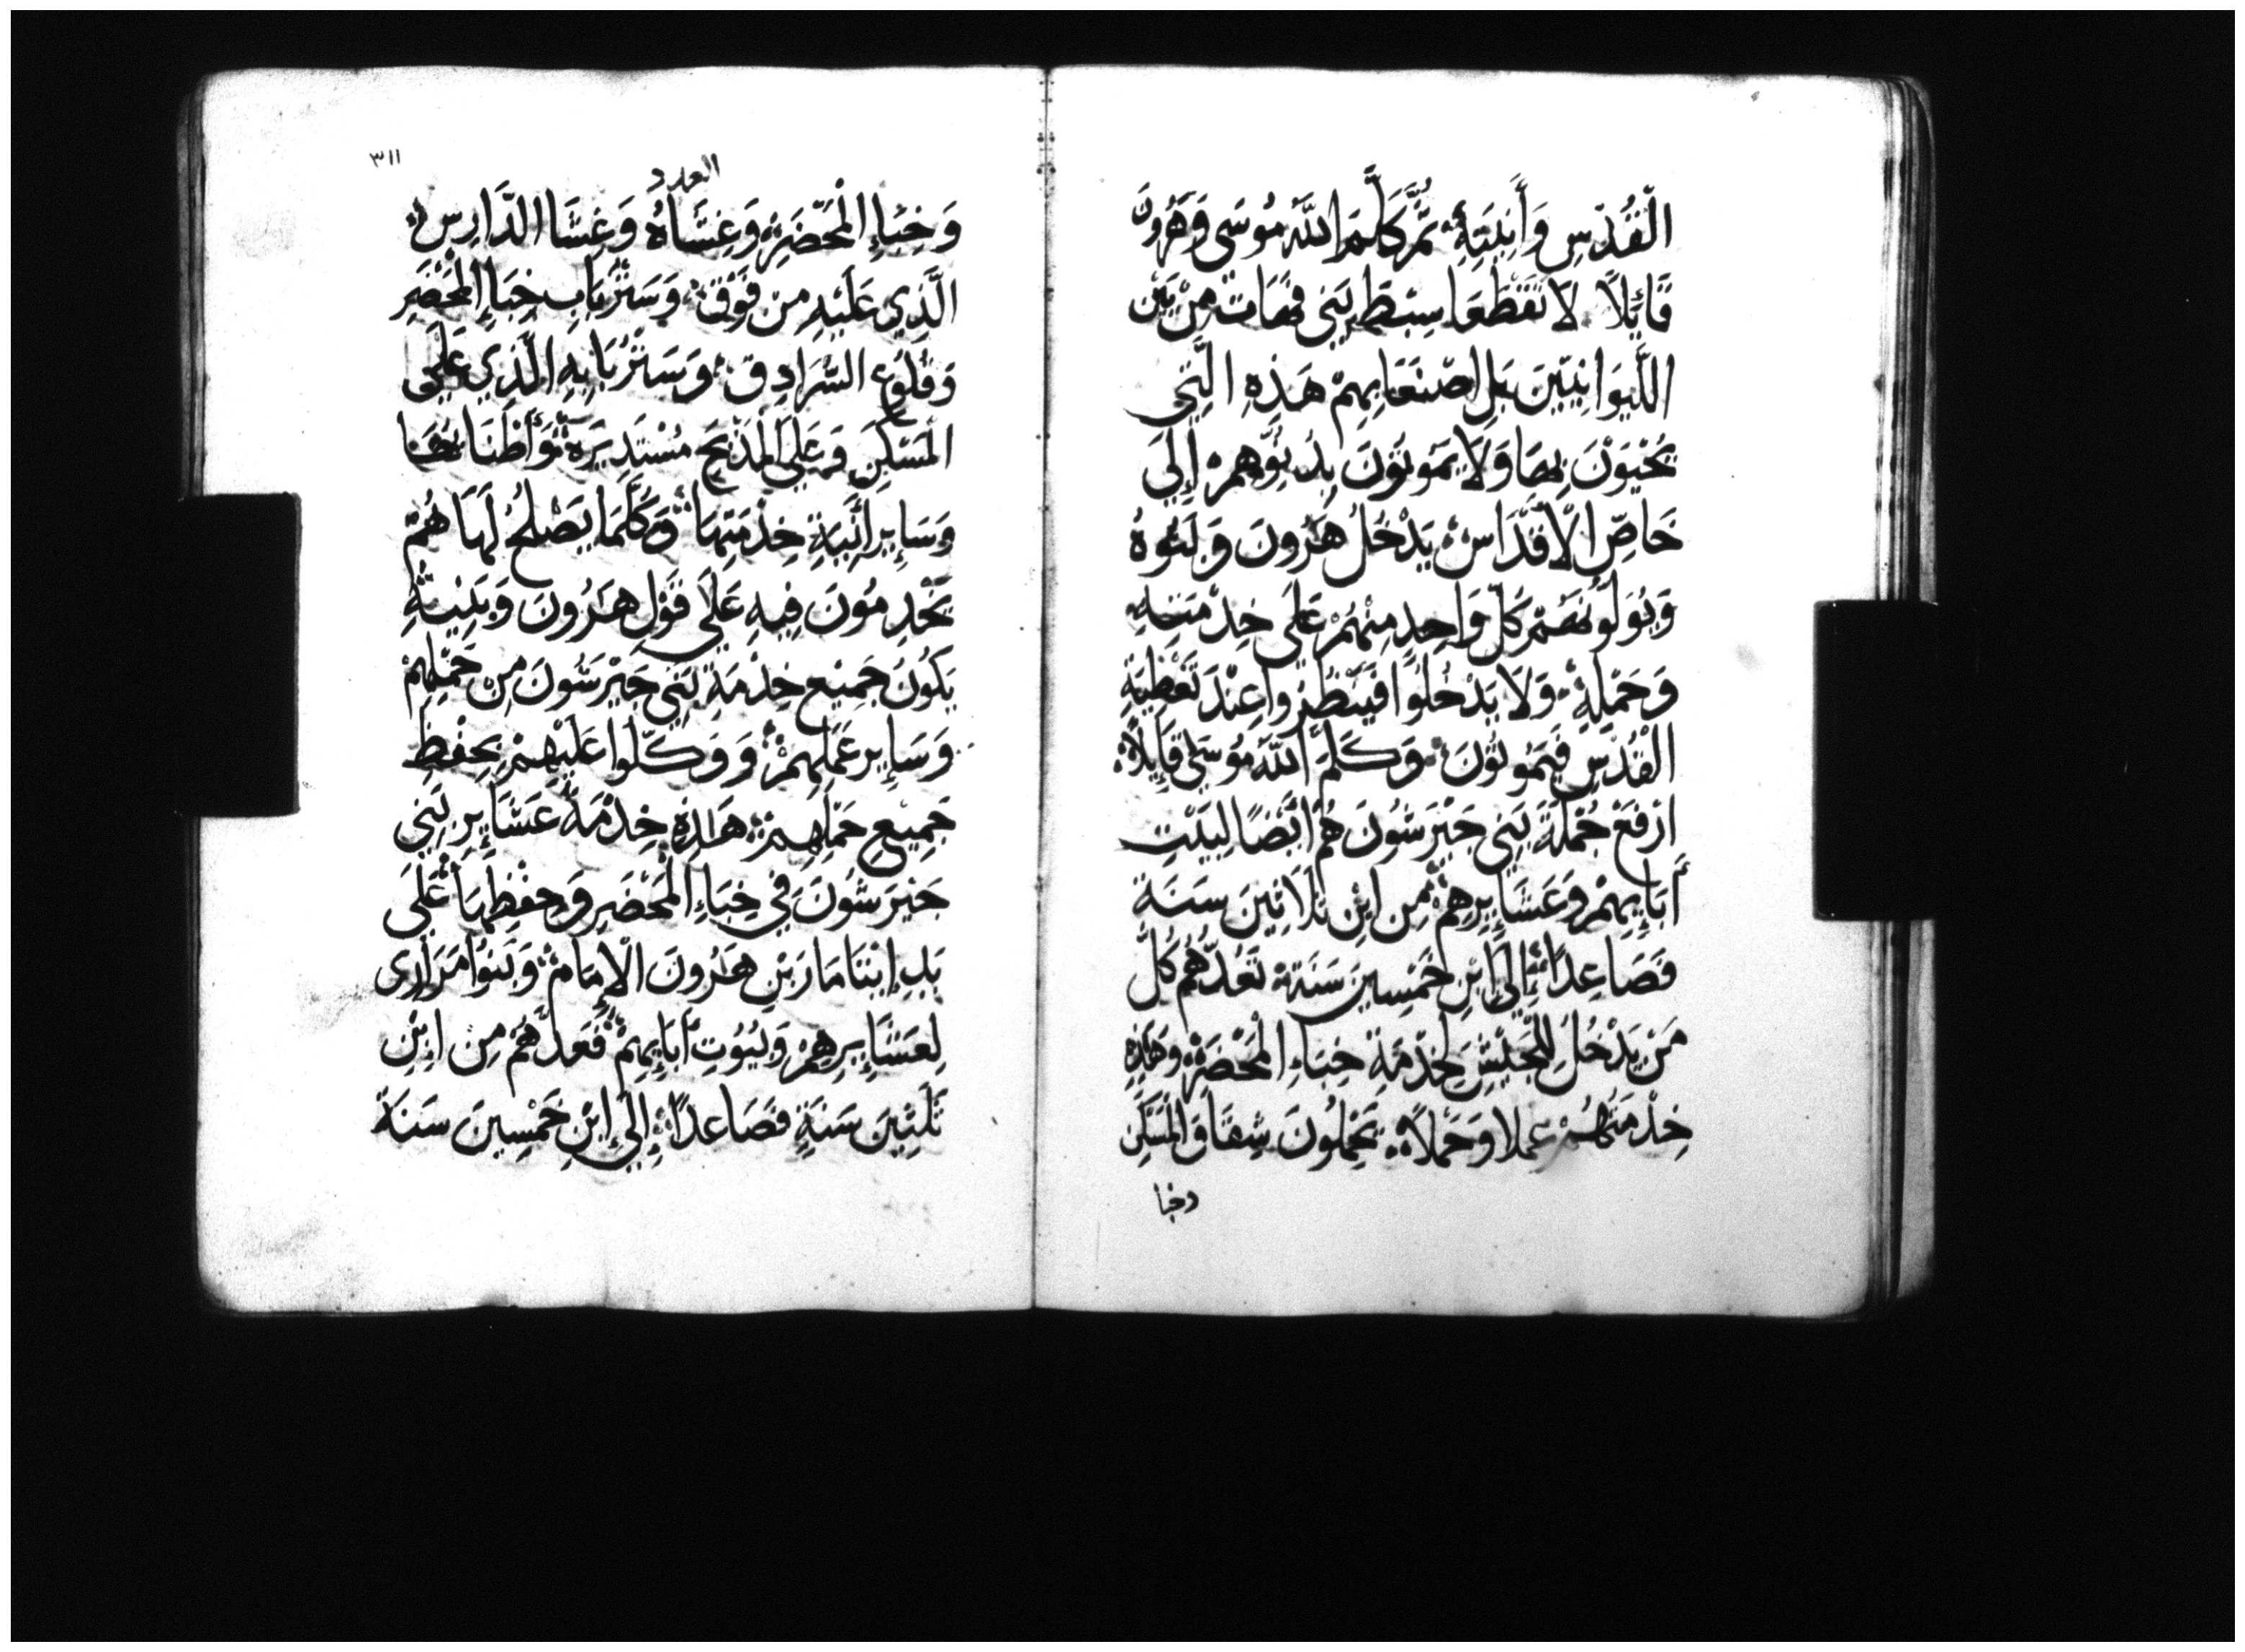 الْقُدْسِ وَأَبْنِيَتِهِ ثُمَّ كَلَّمَ اللَّهُ مُوسَى وَهَرُونَ
قَائِلًا لَا تَقْطَعَا سِبْطَ بَنِي قَهَات مِنْ بَيْنِ
اللَّيوَانِيِّينَ بَلِ اصْنَعَا بِهِمْ هَذِهِ الَّتِي
يُحْيَوْنَ بِهَا وَلَا يَمُوتُوْنَ بِدُنُوِّهِمْ إِلَى
خَاصِّ الْأَقْدَاسِ يَدْخُلُ هَرُونَ وَبَنُوهُ
وَيُوَلُّونَهُمْ كُلَّ وَاحِدٍ مِنْهُمْ عَلَى خِدْمَتِهِ
وَحَمْلِهِ وَلَا يَدْخُلُوا فَيَنْظُرُوا عِنْدَ تَغْطِيَةِ
الْقُدْسِ فَيَمُوتُونَ وَكَلَّمَ اللَّهُ مُوسَى قَائِلًا
ارْفَعْ جُمْلَةَ بَنِي جَيْرَشُونَ هُمْ أَيْضًا لِبَيْتِ
أَبَائِهِمْ وَعَشَائِرِهِمْ مِنِ ابْنِ ثَلَاثِينَ سَنَة
فَصَاعِدًا إِلَى ابْنِ خَمْسِينَ سَنَة تَعُدُّهُمْ كُلَّ
مَنْ يَدْخُلُ لِلْجَيْشِ لِخِدْمَةِ خِبَاءِ الْمَحْضَرِ وَهَذِهِ
خِدْمَتُهُمْ عملا وَحَمْلًا يَحْمِلُونَ شِقَاقَ الْمَسْكَنِ
وخبا
٣١١
العدد
وَخِبَاءِ الْمَحْضَرِ وَغِشَاهُ وَغِشَا الدَّارِسِ
الَّذِي عَلَيْهِ مِنْ فَوْقَ وَسَتْرُ بَابِ خِبَاءِ الْمَحْضَرِ
وَقُلُوعِ السُّرَادِقِ وَسَتْرُ بَابِهِ الَّذِي عَلَى
الْمَسْكَنِ وَعَلَى الْمَذْبَحِ مُسْتَدِيرَة وَأَطْنَابَهَا
وَسَائِرِ أَنِيَةِ خِدْمَتِهَا وَكُلَّمَا يَصْلُحُ لَهَا هُمْ
يَخْدِمُونَ فِيهِ عَلَى قَوْلِ هَرُونَ وَبَنِيْهِ
يَكُونُ جَمِيْع خِدْمَةِ بَنِي جَيْرَشُونَ مِنْ حَمْلِهِمْ
وَسَائِرِ عَمَلِهِمْ وَوَكِّلُوا عَلَيْهِمْ بِحِفْظِ
جَمِيعِ حَمْلِهِمْ هَذِهِ خِدْمَةُ عَشَائِرِ بَنِي
جَيْرَشُونَ فِي خِبَاءِ الْمَحْضَرِ وَحِفْظِهَا عَلَى
يَدِ إِيْتَامَارَ بْنِ هَرُونَ الْإِمَام وَبَنُوا مَرَارِى
لِعَشَائِرِهِمْ وَبُيُوْتِ أَبَائِهِمْ فَعَدَّهُمْ مِن ابْنِ
ثَلَثِيْنَ سَنَةٍ فَصَاعدًا إِلَى ابْنِ خَمْسِينَ سَنَة